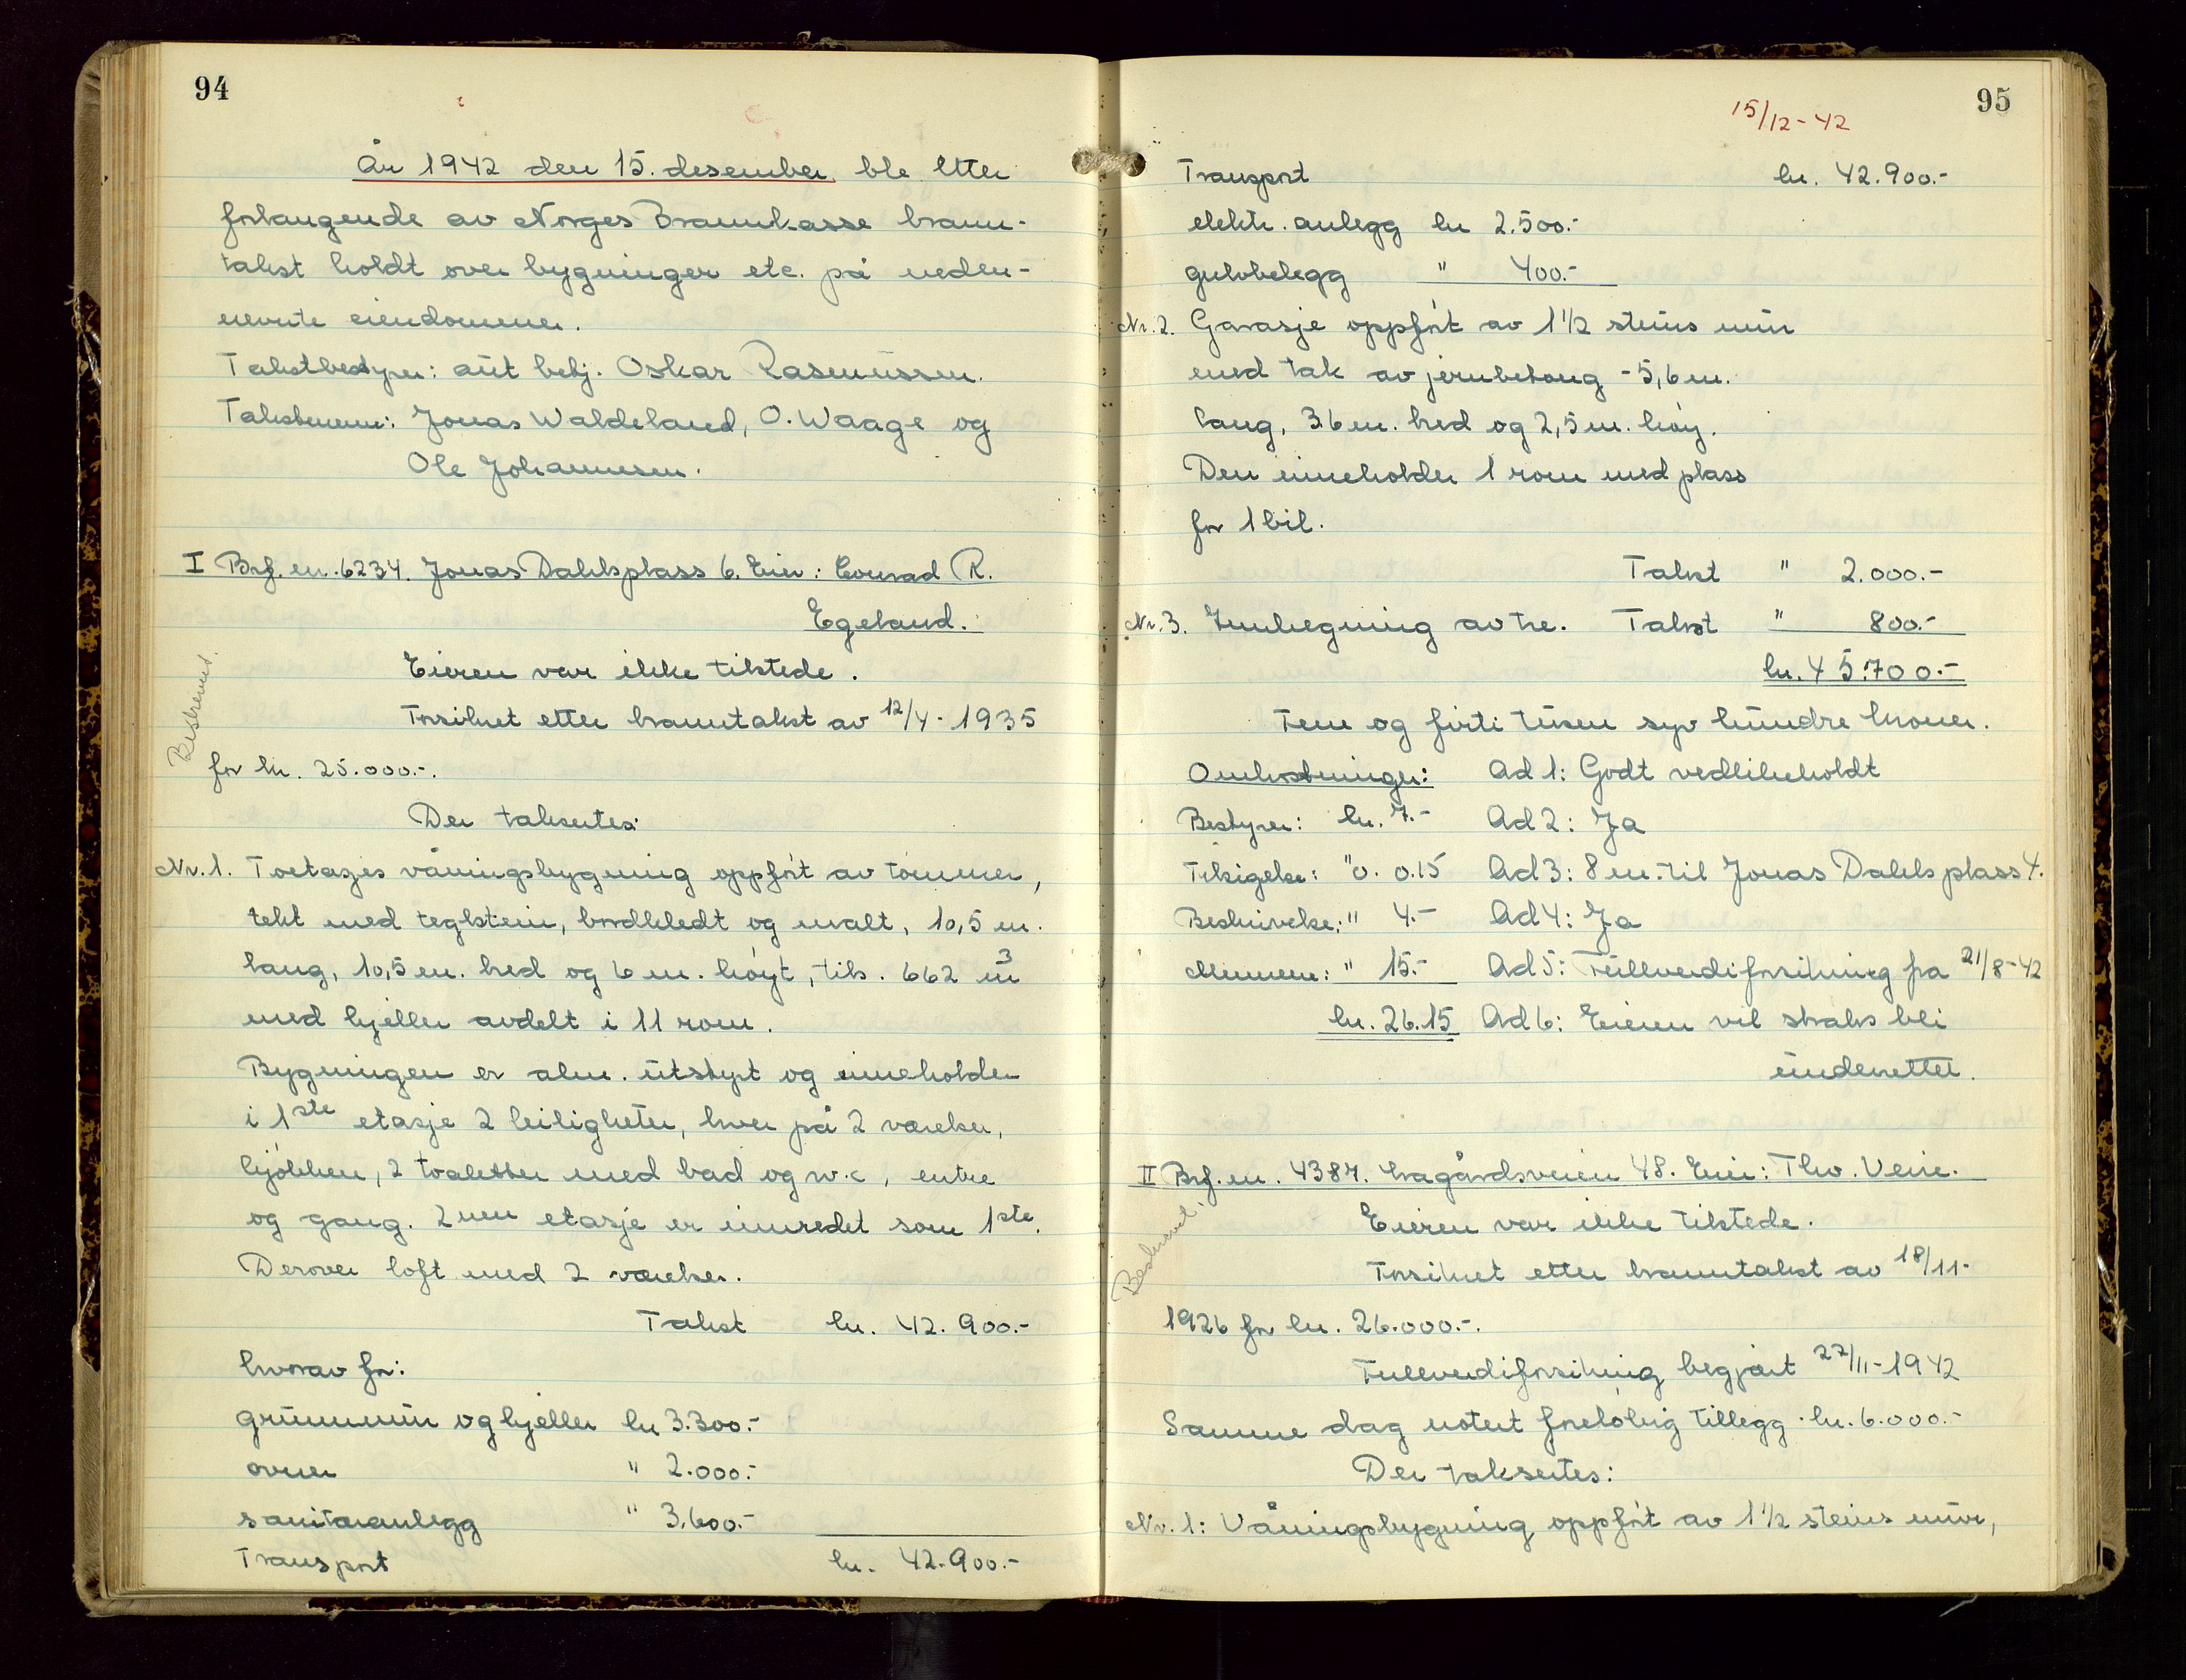 94
År 1942 den 15. desember ble etter
forlangende av Norges Brannkasse brann-
takst holdt over bygninger etc. på neden-
nevnte eiendommer.
Takstbestyrer: aut betj. Oskar Rasmussen.
Takstmenn: Jonas Waldeland, O. Waage og
Ole Johannesen.
I Brf. nr. 6234. Jonas Dahls plass 6. Eier: Conrad R.
Egeland.
Eieren var ikke tilstede.
Forsikret etter branntakst av 12/4-1935
for kr. 25.000.-.
Beskrevet.
Der takseres:
Nr. 1. Toetasjes våningsbygning oppført av tømmer,
tekt med teglstein, bordkledt og malt, 10,5 m.
lang, 10,5 m. bred og 6 m. høyt, tils. 662 m3
med kjeller avdelt i 11 rom.
Bygningen er alm. utstyrt og inneholder
i 1ste etasje 2 leiligheter, hver på 2 værelser,
kjøkken, 2 toaletter med bad og w.c, entre
og gang. 2nen etasje er innredet som 1ste.
Derover loft med 2 værelser.
Takst kr. 42.900.-
hvorav for:
grunnmur og kjeller kr 3.300.-
ovner " 2.000.-
sanitæranlegg " 3.600.-
Transport kr. 42.900.-
95
15/12-42
Transport kr. 42.900.-
elektr. anlegg kr 2.500.-
gulvbelegg " 400.-
Nr. 2. Garasje oppført av 1 1/2 steins mur
med tak av jernbetong - 5,6 m.
lang, 3.6 m. bred og 2,5 m. høy.
Den inneholder 1 rom med plass
for 1 bil.
Takst " 2.000.-
Nr. 3. Innhegning av tre. Takst " 800.-
kr. 45.700.-
Fem og førti tusen syv hundre kroner.
Omkostninger: Ad 1: Godt vedlikeholdt
Bestyrer: kr. 7.- Ad 2: Ja
Tilsigelse: " 0. 0.15 Ad 3: 8 m. til Jonas Dahls plass 4.
Beskrivelse: " 4.- Ad 4: Ja
Mennene: " 15.- Ad 5: Fullverdiforsikring fra 21/8-42
kr. 26.15 Ad 6: Eieren vil straks bli
underrettet.
II Brf. nr. 4387. Lagårdsveien 48. Eier: Thv. Veire.
Eieren var ikke tilstede.
Beskrevet.
Forsikret etter branntakst av 18/11-
1926 for kr. 26.000.-.
Fullverdiforsikring begjært 27/11-1942
Samme dag notert foreløbig tillegg kr. 6.000.-
Der takseres:
Nr. 1: Våningsbygning oppført av 1 1/2 steins mur,